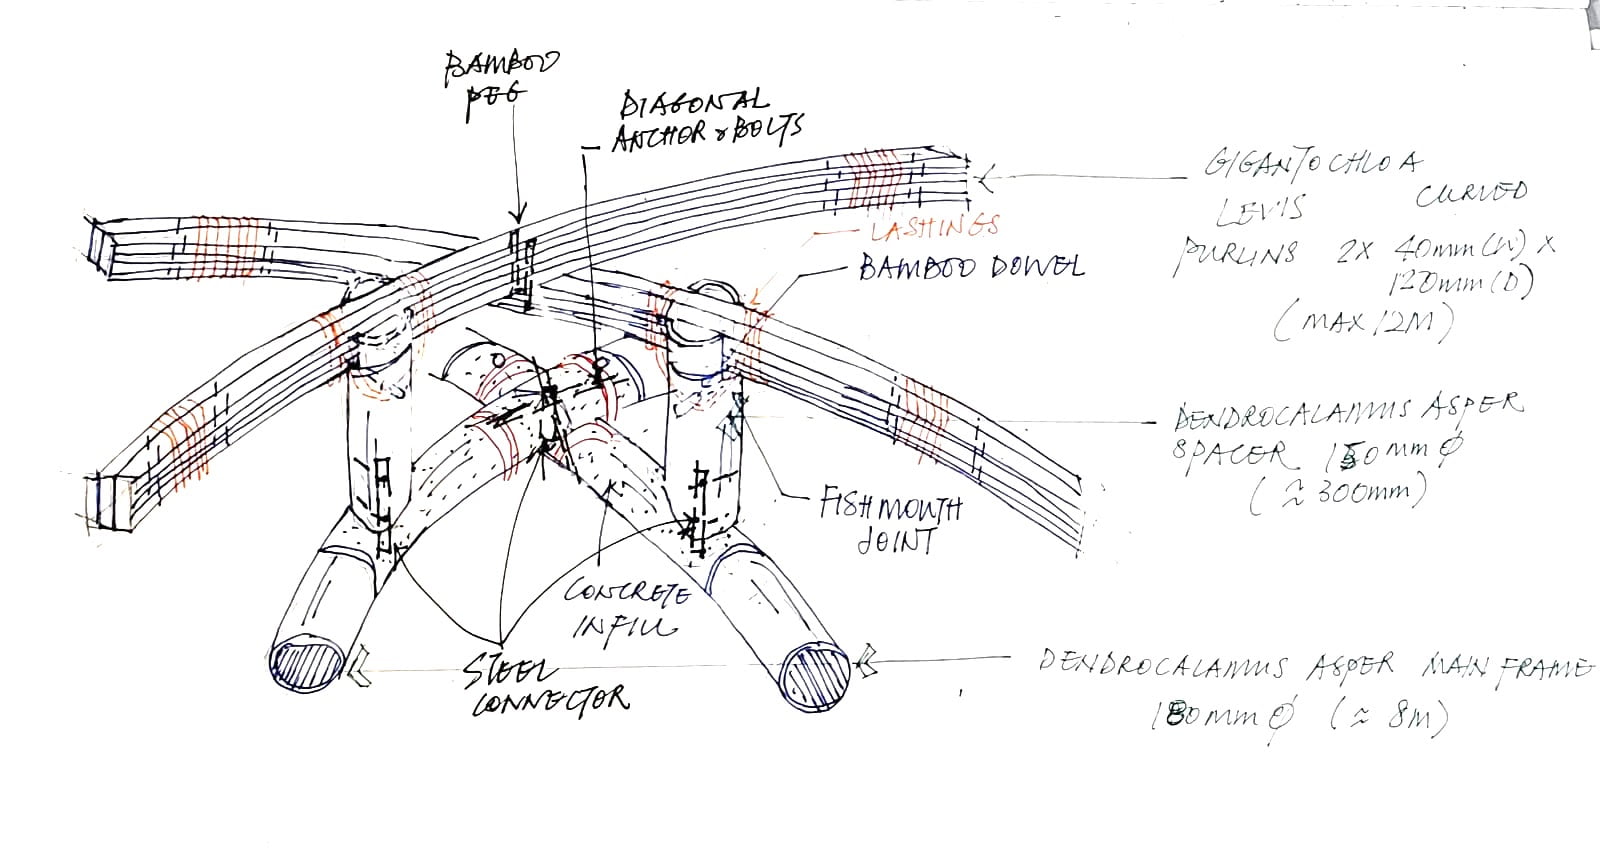 BAMBOO
PEG
DIAGONAL
ANCHOR & BOLTS
GIGANTOCHLOA
LEVIS CURVED
PURLINS 2X 40mm(W) x
120mm(D)
(MAX 12M)
LASHINGS
BAMBOO DOWEL
DENDROCALAMUS ASPER
SPACER 150mm Ø
(≈ 300mm)
FISHMOUTH
JOINT
CONCRETE
INFILL
STEEL
CONNECTOR
DENDROCALAMUS ASPER MAIN FRAME
180mm Ø (≈ 8M)